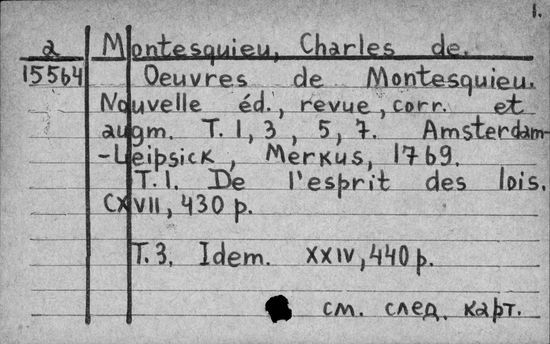 1.
2 Montesquieu, Charles de.
15564 Oeuvres de Montesquieu.
Nouvelle éd., revue, corr. et
augm. T. 1, 3, 5, 7. Amsterdam-
-Leipsick, Merkus, 1769.
T. 1. De l'esprit des lois.
CXVII, 430 p.
T. 3. Idem. XXIV, 440 p.
см. след. карт.